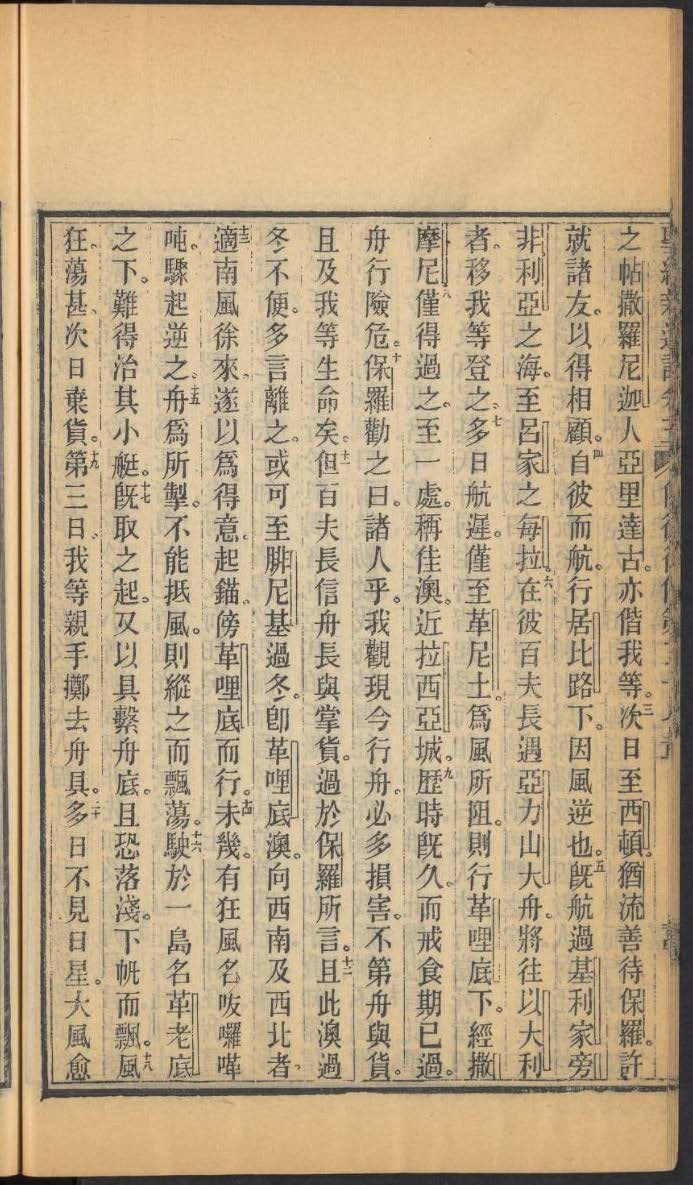 之帖撒羅尼迦人亞里達古。亦偕我等。三次日至西頓。猶流善待保羅。許
就諸友。以得相顧。四自彼而航。行居比路下。因風逆也。五旣航過基利家旁
非利亞之海。至呂家之每拉。六在彼百夫長遇亞力山大舟。將往以大利
者。移我等登之。七多日航遲。僅至革尼土。爲風所阻。則行革哩底下。經撒
摩尼。八僅得過之。至一處。稱佳澳。近拉西亞城。九歷時旣久。而戒食期已過。
舟行險危。十保羅勸之曰。諸人乎。我觀現今行舟。必多損害。不第舟與貨。
且及我等生命矣。十一但百夫長信舟長與掌貨。過於保羅所言。十二且此澳過
冬不便。多言離之。或可至腓尼基過冬。卽革哩底澳。向西南及西北者。
十三適南風徐來。遂以爲得意。起錨。傍革哩底而行。十四未幾。有狂風名吱囉嗶
吨。驟起逆之。十五舟爲所掣。不能抵風。則縱之而飄蕩。十六駛於一島名革老底
之下。難得治其小艇。十七旣取之起。又以具繫舟底。且恐落淺。下帆而飄。十八風
狂。蕩甚。次日棄貨。十九第三日。我等親手擲去舟具。二十多日不見日星。大風愈